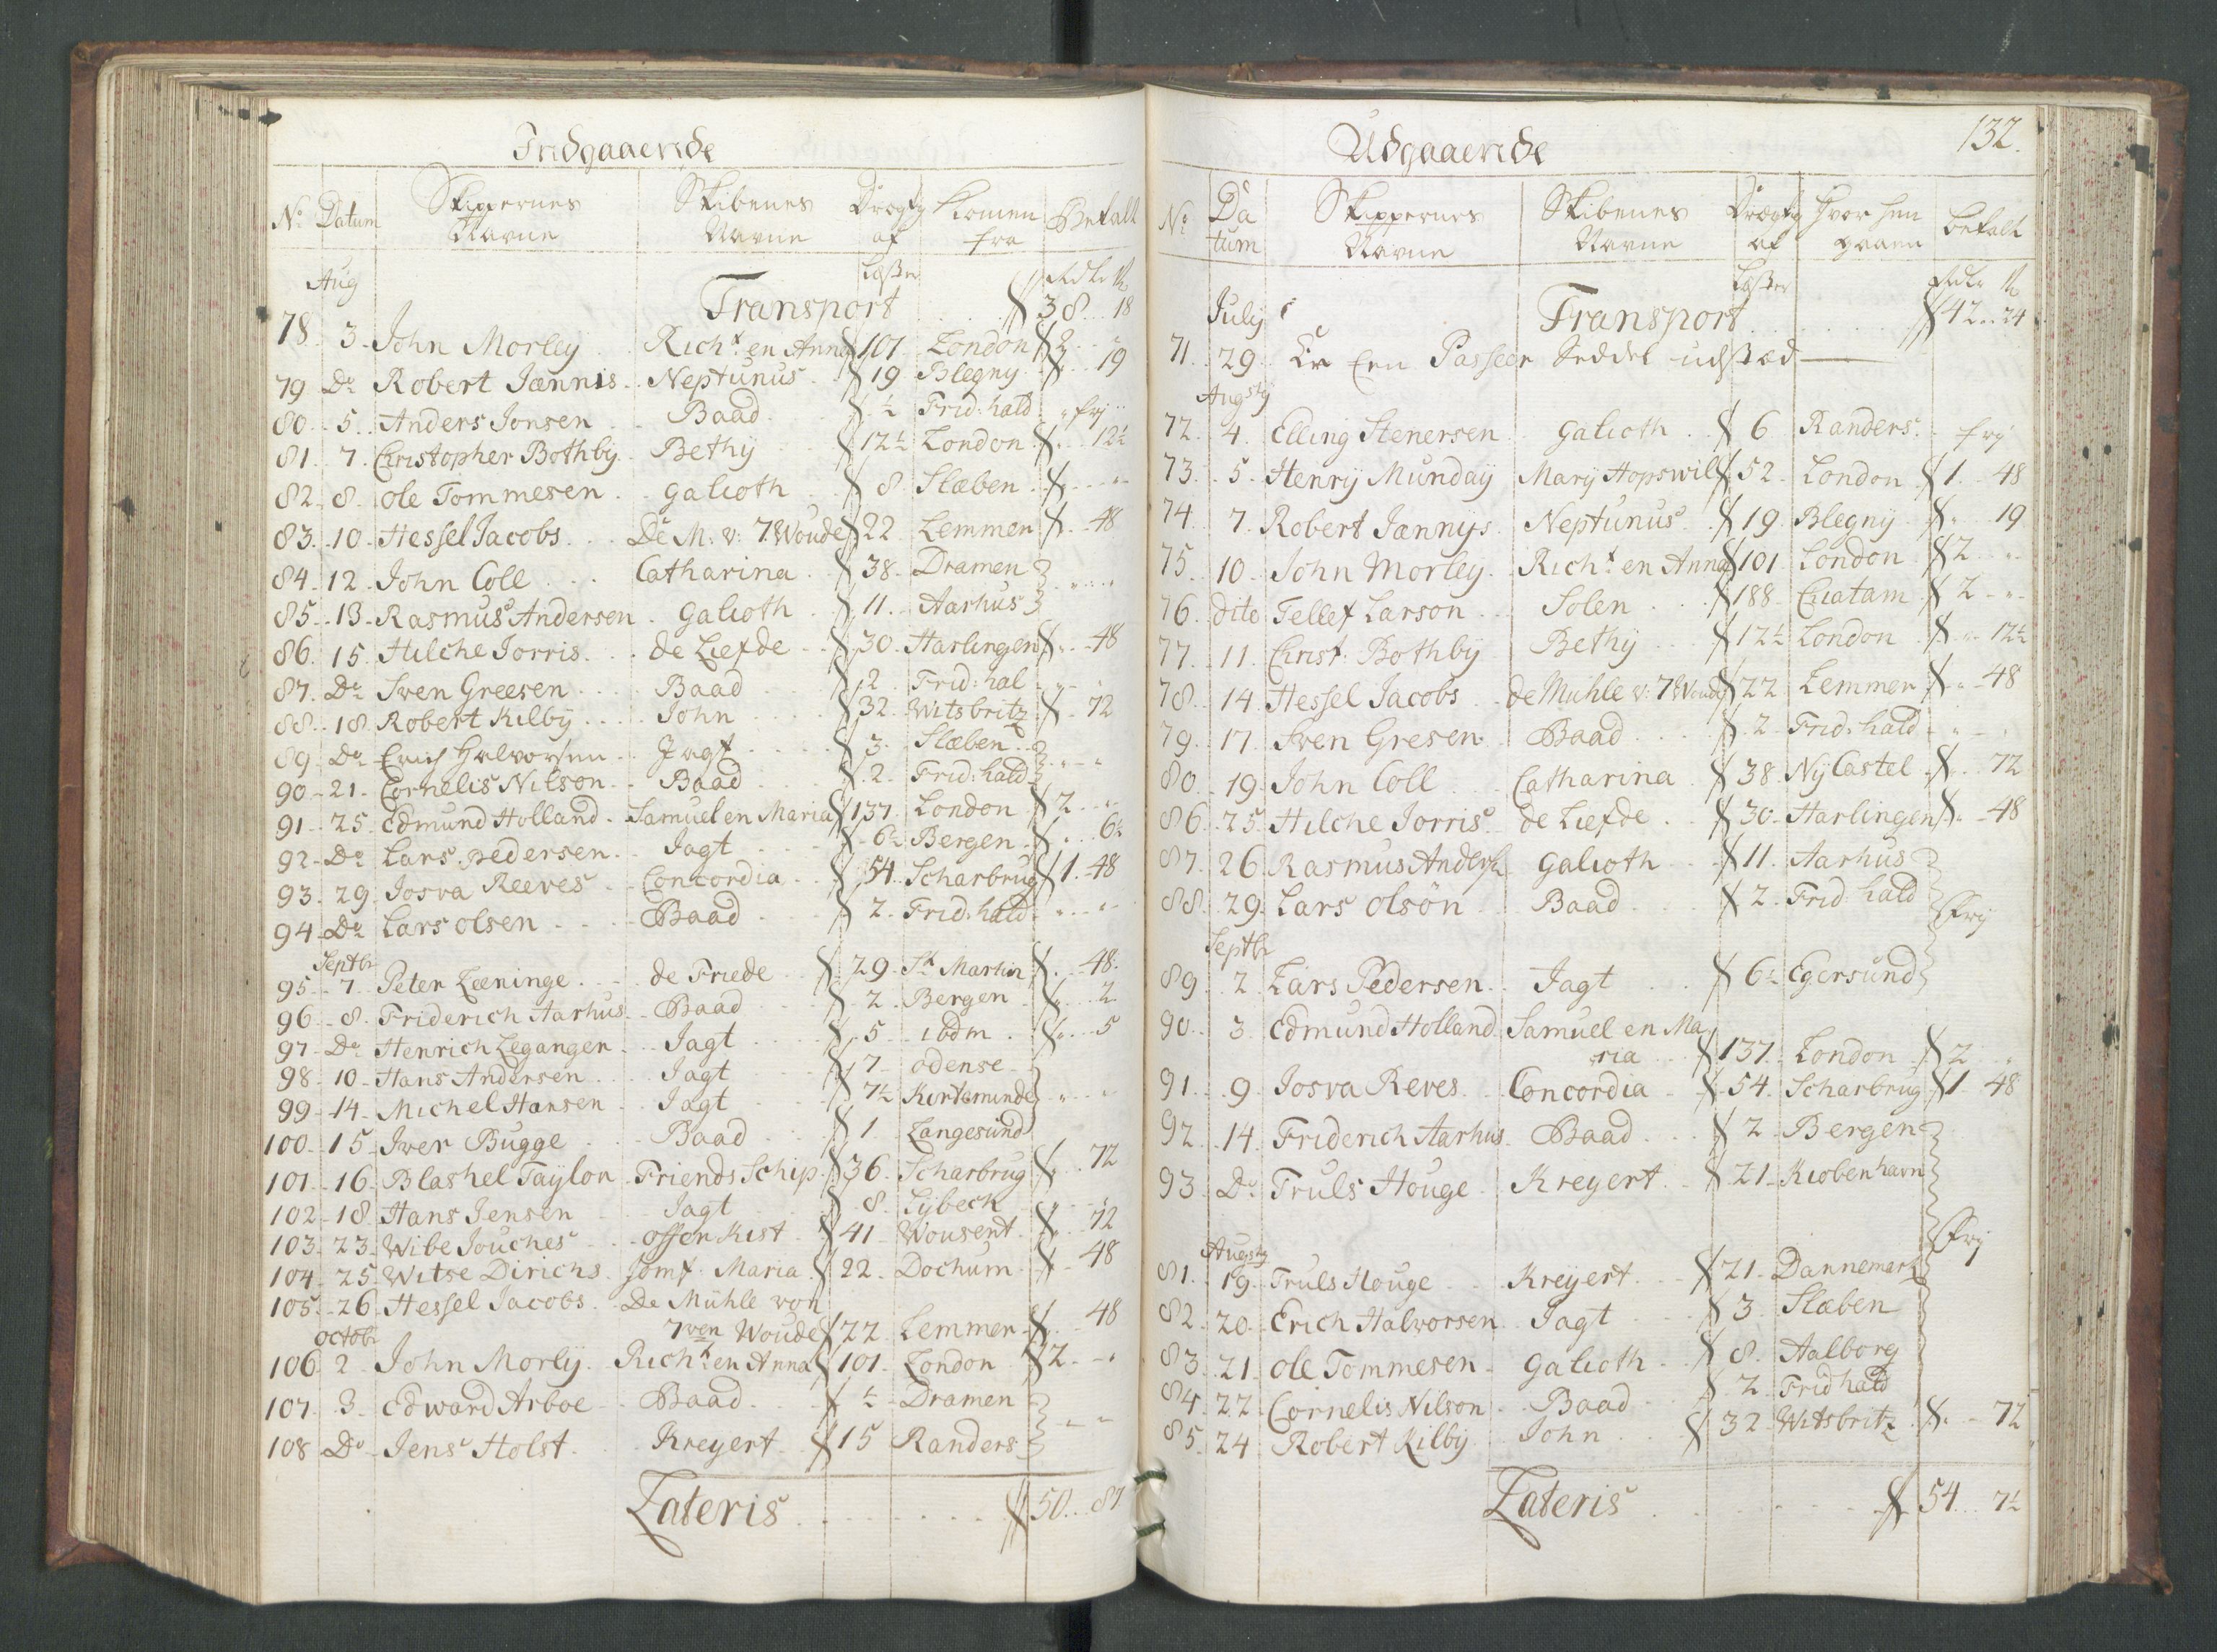 Indgaaende
No Datum Skippernes Navne Skibenes Navne Drægtig af Læster Komen fra Betalt
Aug
Transport 38 18
78 3 John Morley Richd en Anna 101 London 2
79 Do Robert Jænnis Neptunus 19 Blegny 19
80 5 Anders Jonsen Baad ½ Frid:hald fry
81 7 Christopher Bothby Bethy 12½ London 12½
82 8 Ole Tommesen Galioth 8 Slæben
83 10 Hessel Jacobs De M: v: 7 Woude 22 Lemmer 48
84 12 John Coll Catharina 38 Dramen
85 13 Rasmus Andersen Galioth 11 Aarhus
86 15 Hilche Jorris de Liefde 30 Harlingen 48
87 Do Sven Greesen Baad 2 Frid:hal
88 18 Robert Kilby John 32 Witsbritz 72
89 Do Erich Halvorsen Jagt 3 Slæben
90 21 Cornelis Nilson Baad 2 Frid:hald
91 25 Edmund Holland Samuel en Maria 137 London 2
92 Do Lars Pedersen Jagt 6½ Bergen 6½
93 29 Josva Reeves Concordia 54 Scharbrug 1 48
94 Do Lars Olsen Baad 2 Frid:hald
Septbr
95 7 Peter Læninge de Friede 29 St Martin 48
96 8 Friderich Aarhus Baad 2 Bergen 2
97 Do Henrich Legangen Jagt 5 ibdm 5
98 10 Hans Andersen Jagt 7 Odense
99 14 Michel Hansen Jagt 7½ Kirtemunde
100 15 Iver Bugge Baad 1 Langesund
101 16 Blashel Taylon Friends Schip 36 Scharbrug 72
102 18 Hans Jensen Jagt 8 Lybeck
103 23 Wibe Jouches Offer Kist 41 Wousent 72
104 25 Witse Dirichs Jomf. Maria 22 Dochum 48
105 26 Hessel Jacobs De Mühle von
Octobr 7ven Woude 22 Lemmer 48
106 2 John Morly Richd en Anna 101 London 2
107 3 Edward Arboe Baad ½ Dramen
108 Do Jens Holst Kreyert 15 Randers
Lateris 50 87
Udgaaende 132.
No Datum Skippernes Navne Skibenes Navne Drægtig af Læster Hvor hen gaaen Betalt
July Transport 42 24
71 29 Er Een Passeer Seddel udstæd
Augsty
72 4 Elling Stenersen Galioth 6 Randers fry
73 5 Henry Munday Mary Hopswil 52 London 1 48
74 7 Robert Jænnys Neptunus 19 Blegny 19
75 10 John Morley Richd en Anna 101 London 2
76 dito Tellef Larson Solen 188 Chatam 2
77 11 Christ: Bothby Bethy 12½ London 12½
78 14 Hessel Jacobs de Mühle v: 7 Woude 22 Lemmer 48
79 17 Sven Gresen Baad 2 Frid:hald
80 19 John Coll Catharina 38 Ny Castel 72
86 25 Hilche Jorris de Liefde 30 Harlingen 48
87 26 Rasmus Anders: Galioth 11 Aarhus
88 29 Lars Olsön Baad 2 Frid:hald fry
Septbr
89 2 Lars Pedersen Jagt 6½ Egersund
90 3 Edmund Holland Samuel en Ma
ria 137 London 2
91 9 Josva Reves Concordia 54 Scharbrug 1 48
92 14 Friderich Aarhus Baad 2 Bergen
93 Do Truls Houge Kreyert 21 Kiobenhavn
fry
Augsty
81 19 Truls Houge Kreyert 21 Dannemark
82 20 Erich Halvorsen Jagt 3 Slæben
83 21 Ole Tommesen Galioth 8 Aalborg
84 22 Cornelis Nilson Baad 2 Frid hald
85 24 Robert Kilby John 32 Witsbritz 72
Lateris 54 7½